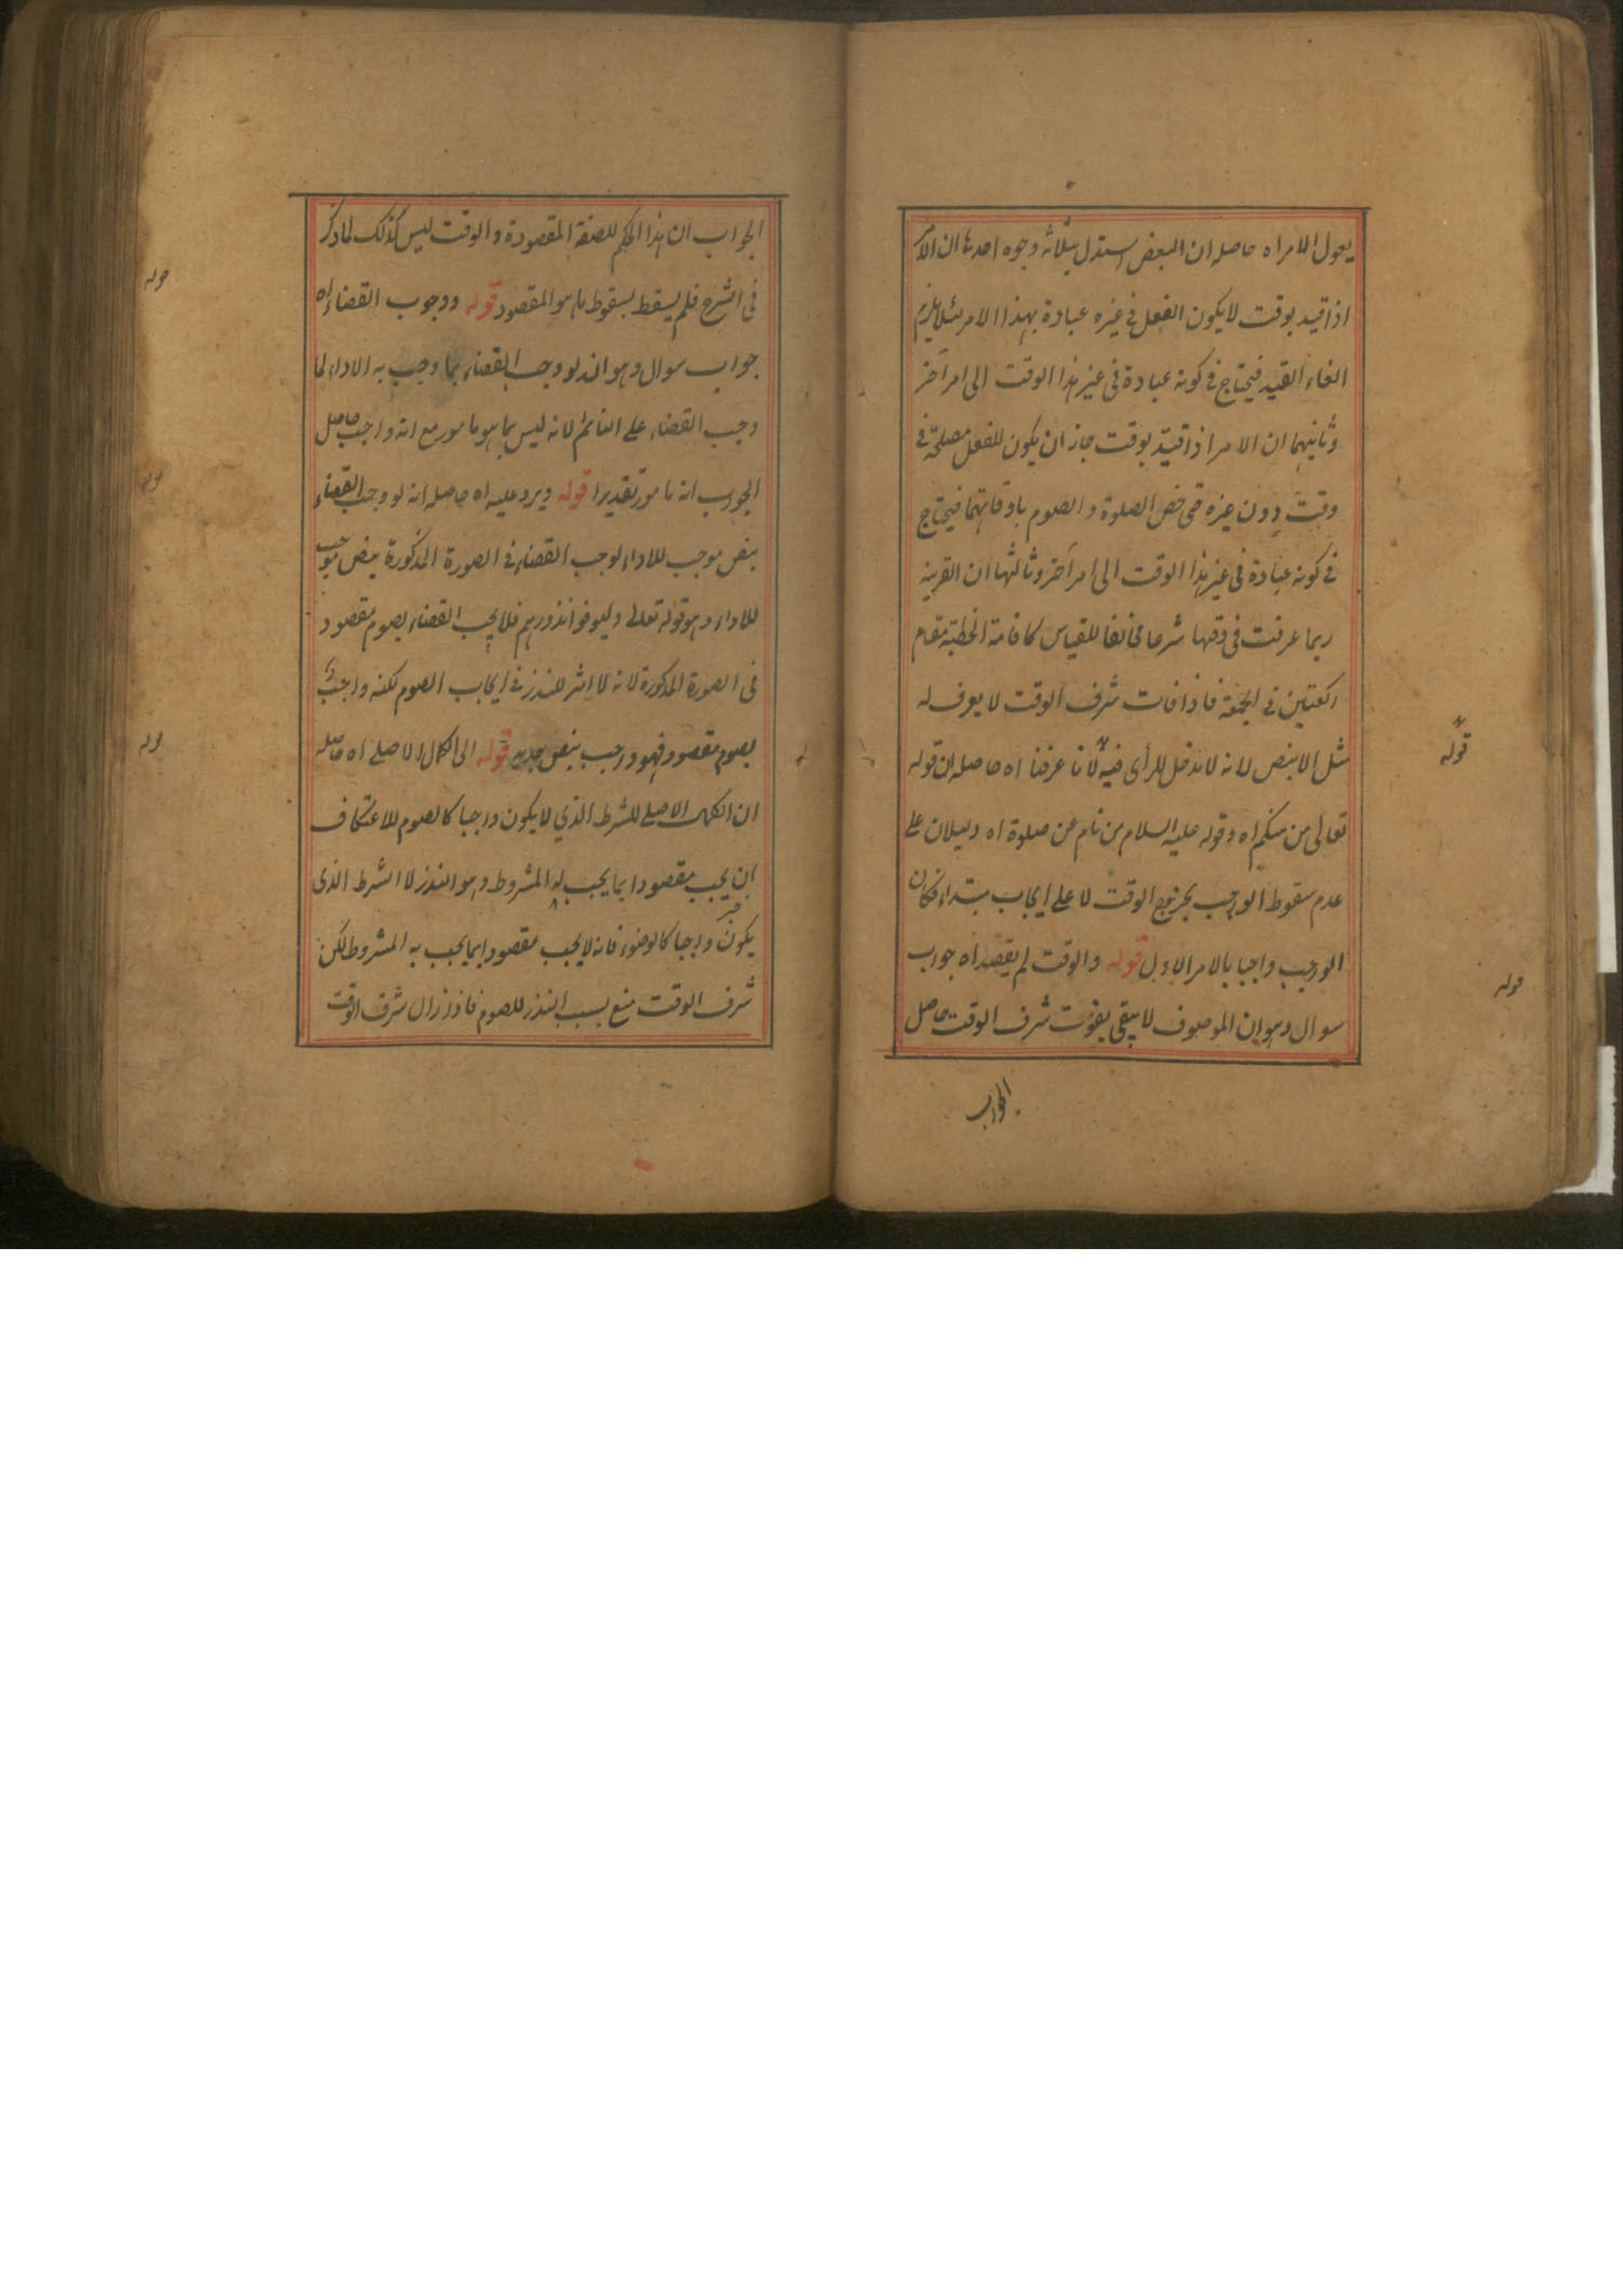 يقول الامر اه حاصله ان البعض استدل بثلاثة وجوه احدها ان الامر
اذا قيد بوقت لا يكون الفعل فى غيره عبادة بهذا الامر لئلا يلزم
الغاء القيد فيحتاج فى كونه عبادة فى غير هذا الوقت الى امر آخر
وثانيهما ان الامر اذا قيد بوقت جاز ان يكون للفعل مصلحة فى
وقت دون غيره حتى خص الصلوة والصوم باوقاتهما فيحتاج
فى كونه عبادة فى غير هذا الوقت الى امر آخر وثالثها ان القربة
ربما عرفت فى وقتها شرعا مخالفا للقياس كاقامة الخطبة مقام
ركعتين فى الجمعة فاذا فات شرف الوقت لا يعرف له
مثل الا بنص لانه لا مدخل للرأى فيه لانا عرفنا اه حاصله ان قوله
قوله
تعالى من منكم اه وقوله عليه السلام من نام عن صلوة اه دليلان على
عدم سقوط الواجب بخروج الوقت لا على ايجاب مبتداء فكان
الواجب واجبا بالامر الاول قوله والوقت لم يقصد اه جواب
قوله
سوال وهو ان الموصوف لا يبقى بفوت شرف الوقت حاصل
الجواب
الجواب ان هذا الحكم للصفة المقصودة والوقت ليس كذلك لما ذكر
فى الشرح فلم يسقط بسقوط ما هو المقصود قوله ووجوب القضاء اه
قوله
جواب سوال وهو انه لو وجب القضاء بما وجب به الاداء لما
وجب القضاء على النائم لانه ليس بما هو مامور مع انه واجب حاصل
الجواب انه مامور تقديرا قوله ويرد عليه اه حاصله انه لو وجب القضاء
قوله
بنص موجب للاداء لوجب القضاء فى الصورة المذكورة بنص موجب
للاداء وهو قوله تعالى وليوفوا نذورهم فلا يجب القضاء بصوم مقصود
فى الصورة المذكورة لانه لا اثر للنذر فى ايجاب الصوم لكنه واجب
بصوم مقصود فهو وجب بنص جديد قوله الى الكمال الاصلى اه حاصله
قوله
ان الكمال الاصلى للشرط الذي لا يكون واجبا كالصوم للاعتكاف
ان يجب مقصودا بما يجب به المشروط وهو النذر لا الشرط الذى
يكون واجبا كالوضوء فانه لا يجب مقصودا بما يجب به المشروط لكن
شرف الوقت منع بسبب النذر للصوم فاذا زال شرف الوقت